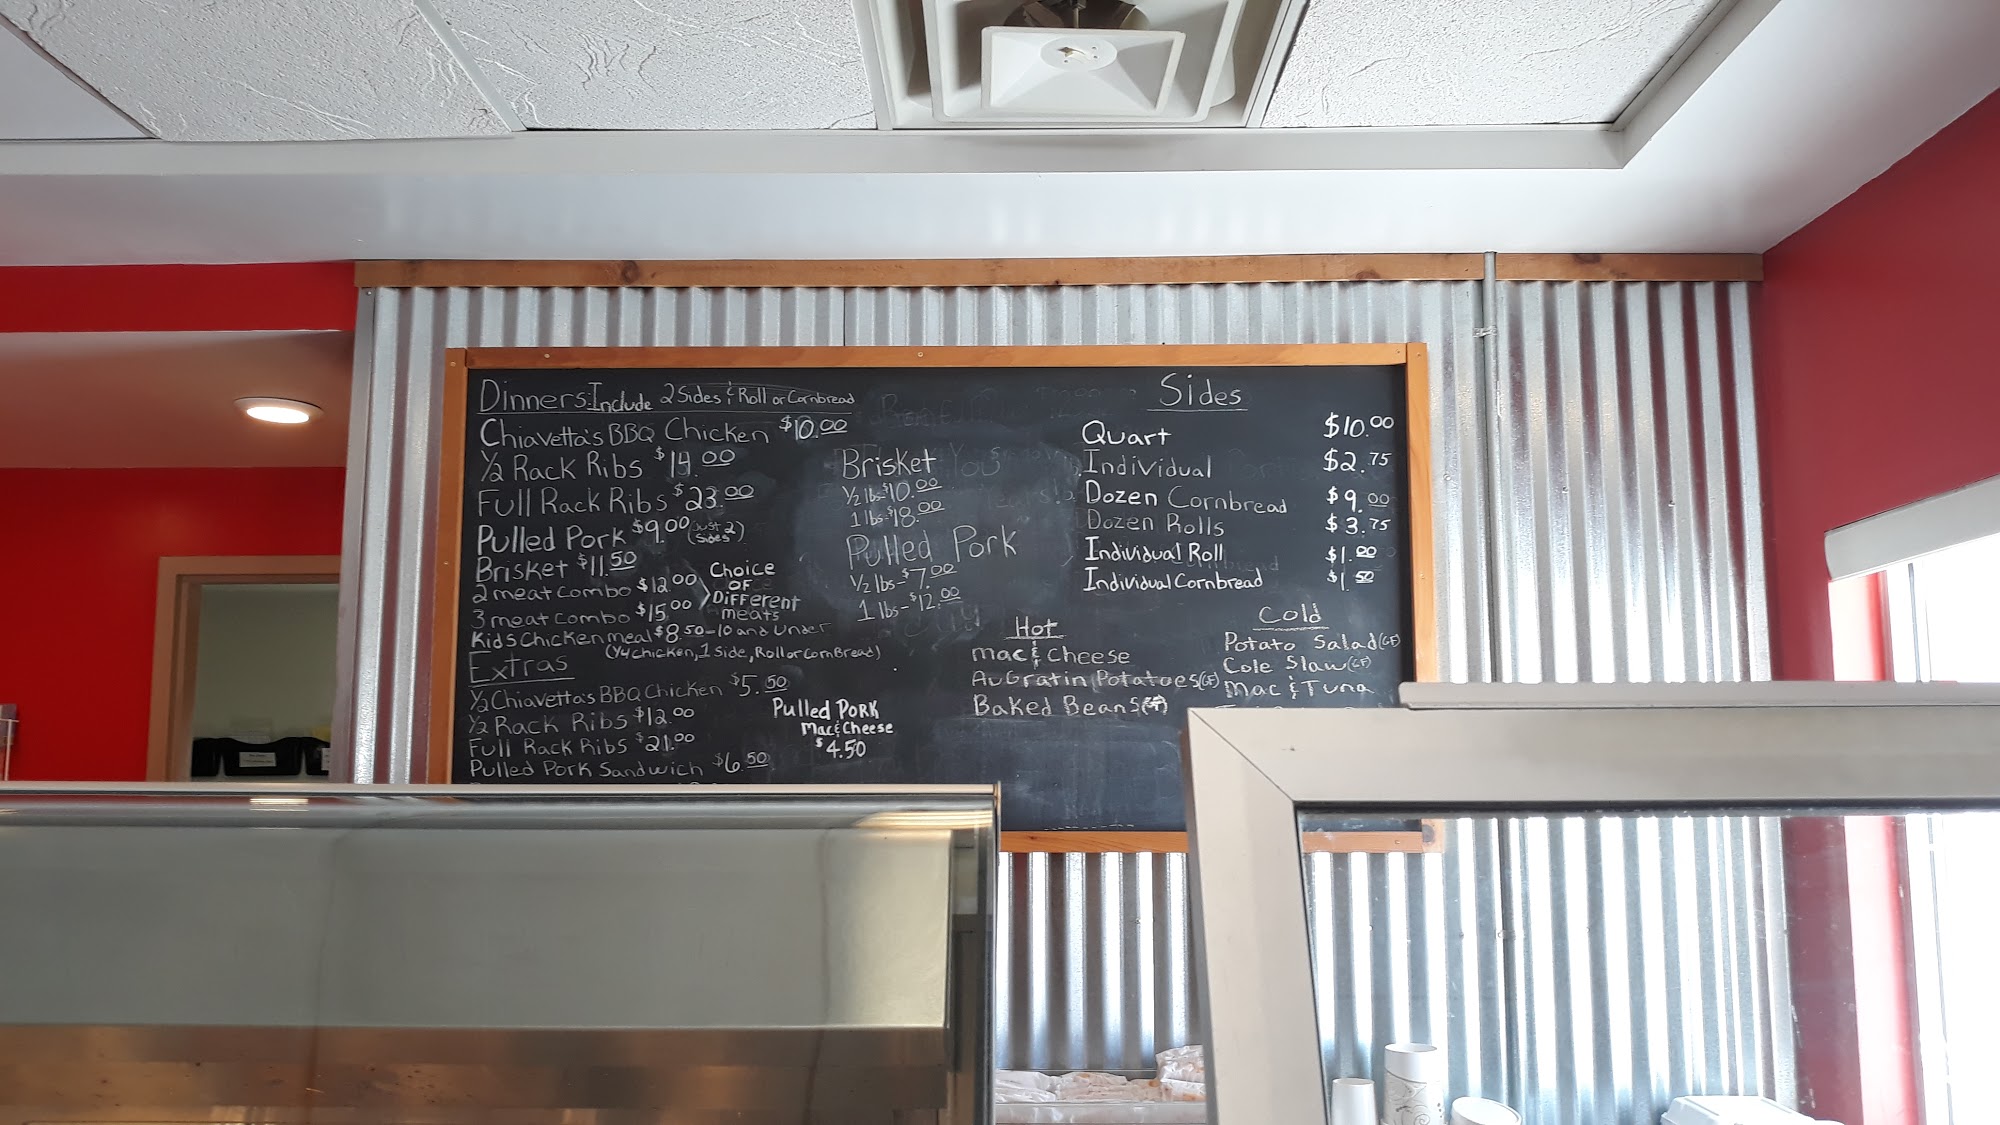 Dinners: Include 2 Sides & Roll or Cornbread
Chiavetta's BBQ Chicken $10.00
1/2 Rack Ribs $14.00
Full Rack Ribs $23.00
Pulled Pork $9.00 (just 2 sides)
Brisket $11.50
2 meat combo $12.00
3 meat combo $15.00
Choice
OF
Different
meats
Kids Chicken meal $8.50-10 and under
(1/4 chicken, 1 Side, Roll or CornBread)
Extras
1/2 Chiavetta's BBQ Chicken $5.50
1/2 Rack Ribs $12.00
Full Rack Ribs $21.00
Pulled Pork Sandwich $6.50
Brisket
1/2 lb-$10.00
1 lbs-$18.00
Pulled Pork
1/2 lbs-$7.00
1 lbs-$12.00
Pulled Pork
Mac & Cheese
$4.50
Sides
Quart $10.00
Individual $2.75
Dozen Cornbread $9.00
Dozen Rolls $3.75
Individual Roll $1.00
Individual Cornbread $1.50
Hot
Mac & Cheese
Au Gratin Potatoes (GF)
Baked Beans (GF)
Cold
Potato Salad (GF)
Cole Slaw (GF)
Mac & Tuna